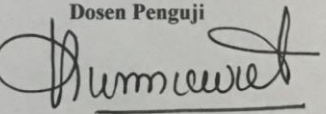 Dosen Penguji